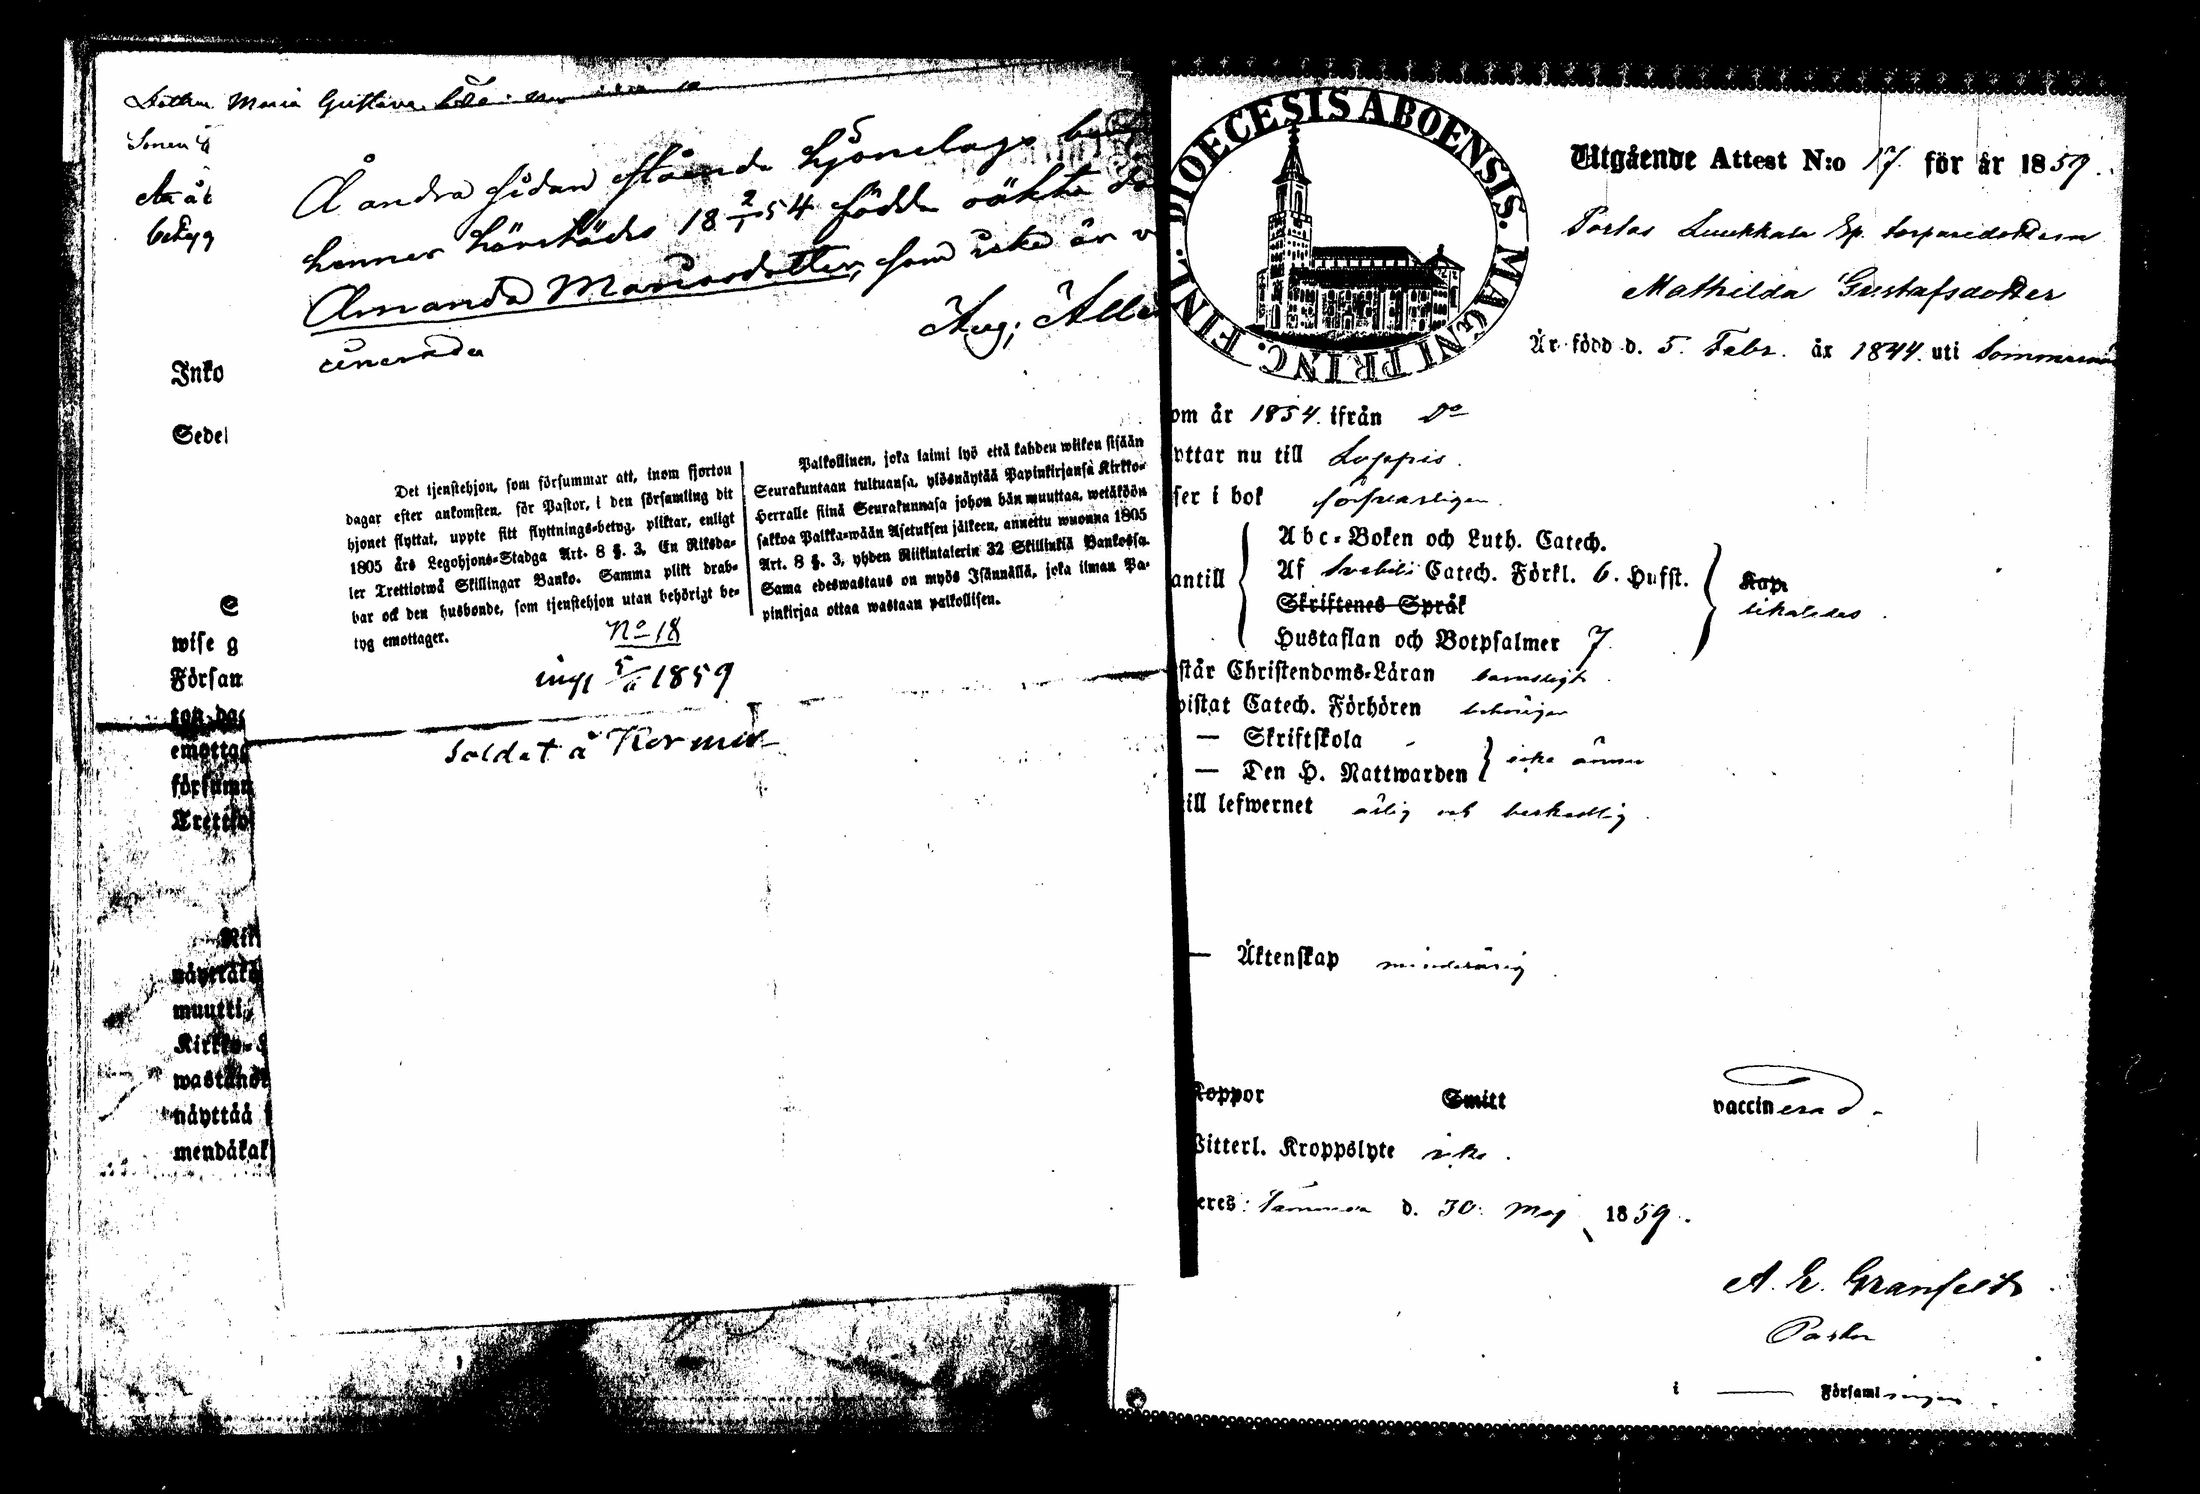 Dottern Maria Gustava
Sonen
betyg
Å andra sidan stående hjonelags
hennes härstädes 18 2/1 54 födda oäkta
Amanda Mariasdotter, som icke är v
cinerada
Aug; Alle
Inko
Sedel
Det tjenstehjon, som försummar att, inom fjorton
dagar efter ankomsten, för Pastor, i den församling dit
hjonet flyttat, uppte sitt flyttnings-betyg, pliktar, enligt
1805 års Legohjons-Stadga Art. 8 §. 3, En Riksda-
ler Trettiotwå Skillingar Banko. Samma plikt drab-
bar ock den husbonde, som tjenstehjon utan behörigt be-
tyg emottager.
Palkollinen, joka laimi lyö että kahden wiikon sisään
Seurakuntaan tultuansa, ylösnäyttää Papinkirjansa Kirkko-
Herralle siinä Seurakunnasa johon hän muuttaa, wetäköön
sakkoa Palkka-wään Asetuksen jälkeen, annettu wuonna 1805
Art. 8 §. 3, yhden Riikintalerin 32 Skillinkiä Bankossa.
Sama edeswastaus on myös Isännällä, joka ilman Pa-
pinkirjaa ottaa wastaan palkollisen.
No 18
1859
S
wise g
Försam
ton dag
emottag
försumm
Trettio
soldat å
Rik
näyttäkä
muutti,
Kirkko-S
wastanot
näyttää
mendäkak
DIOECESIS ABOENSIS. MAGNI PRINC. FINL.
Utgående Attest N:o 17 för år 1859.
Portas Luukkala
Mathilda Gustafsdotter
Är född d. 5. Febr. år 1844. uti Sommarnäs
om år 1854. ifrån Do
yttar nu till Loppis.
ser i bok försvarligen
antill
Abc-Boken och Luth. Catech.
Af Svebilii Catech. Förkl. 6. Hufst.
Skriftenes Språk
Hustaflan och Botpsalmer 7.
Kap.
likaledes
står Christendoms-Läran barnsligt
vistat Catech. Förhören behörigen
— Skriftskola
— Den H. Nattwarden
icke ännu
till lefwernet ärlig och beskedlig
— Äktenskap minderårig
Koppor Smitt vaccinerad.
Vitterl. Kroppslyte icke.
eres: Tammela d. 30. Maj 1859.
A. E. Granfelt
Pastor
i — Församlingen